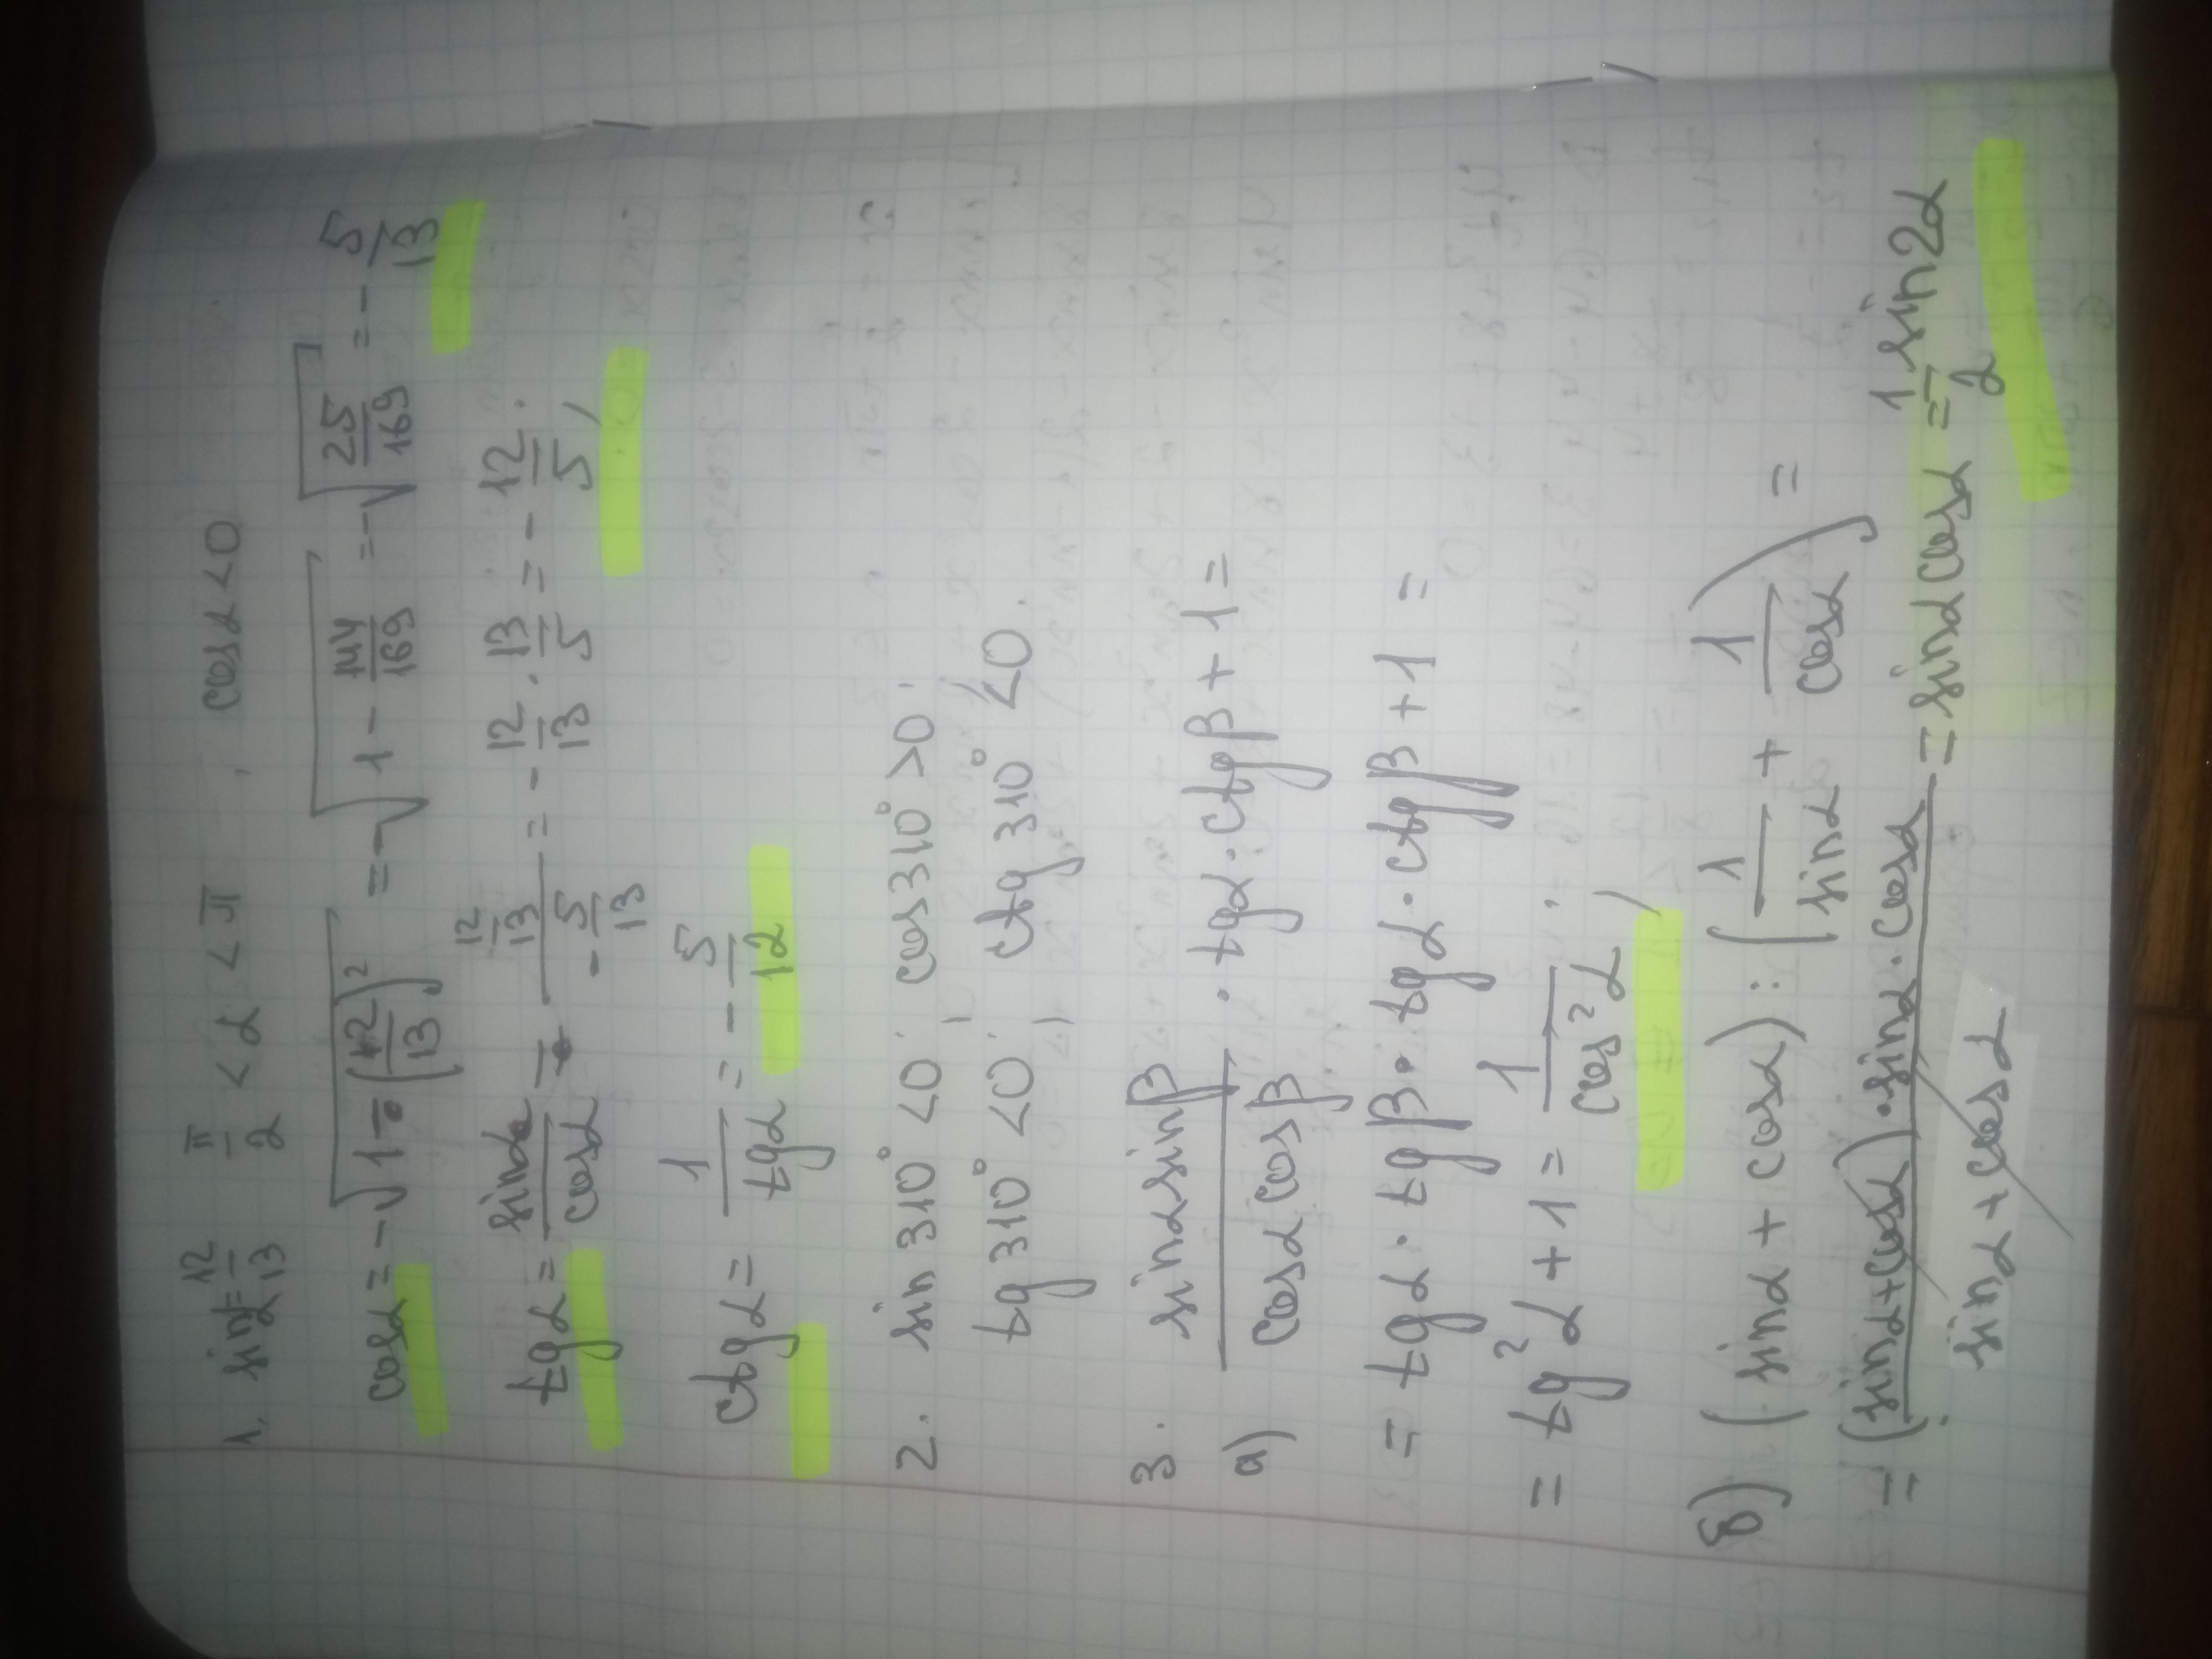 1. sinα = 12/13 π/2 < α < π, cosα < 0
cosα = -√(1 - (12/13)²) = -√(1 - 144/169) = -√(25/169) = - 5/13
tgα = sinα/cosα = (12/13)/(-5/13) = - 12/13 · 13/5 = - 12/5,
ctgα = 1/tgα = - 5/12
2. sin 310° < 0, cos 310° > 0,
tg 310° < 0, ctg 310° < 0.
3.
a) (sinα sinβ)/(cosα cosβ) · tgα · ctgβ + 1 =
= tgα · tgβ · tgα · ctgβ + 1 =
= tg²α + 1 = 1/cos²α,
б) (sinα + cosα) : (1/sinα + 1/cosα) =
= ((sinα + cosα) · sinα · cosα)/(sinα + cosα) = sinα cosα = 1/2 sin2α